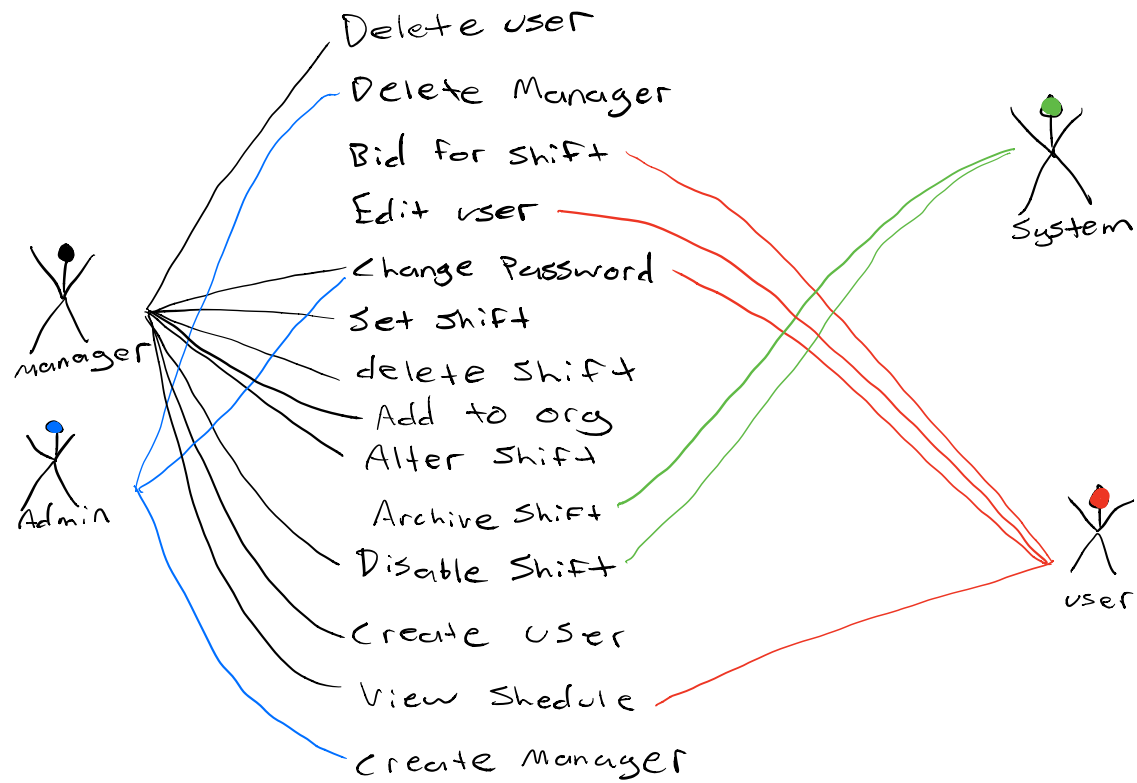 Delete user
Delete Manager
Bid for shift
Edit user
Change Password
Set shift
delete shift
Add to org
Alter shift
Archive shift
Disable shift
Create user
View Shedule
Create Manager
Manager
Admin
System
user